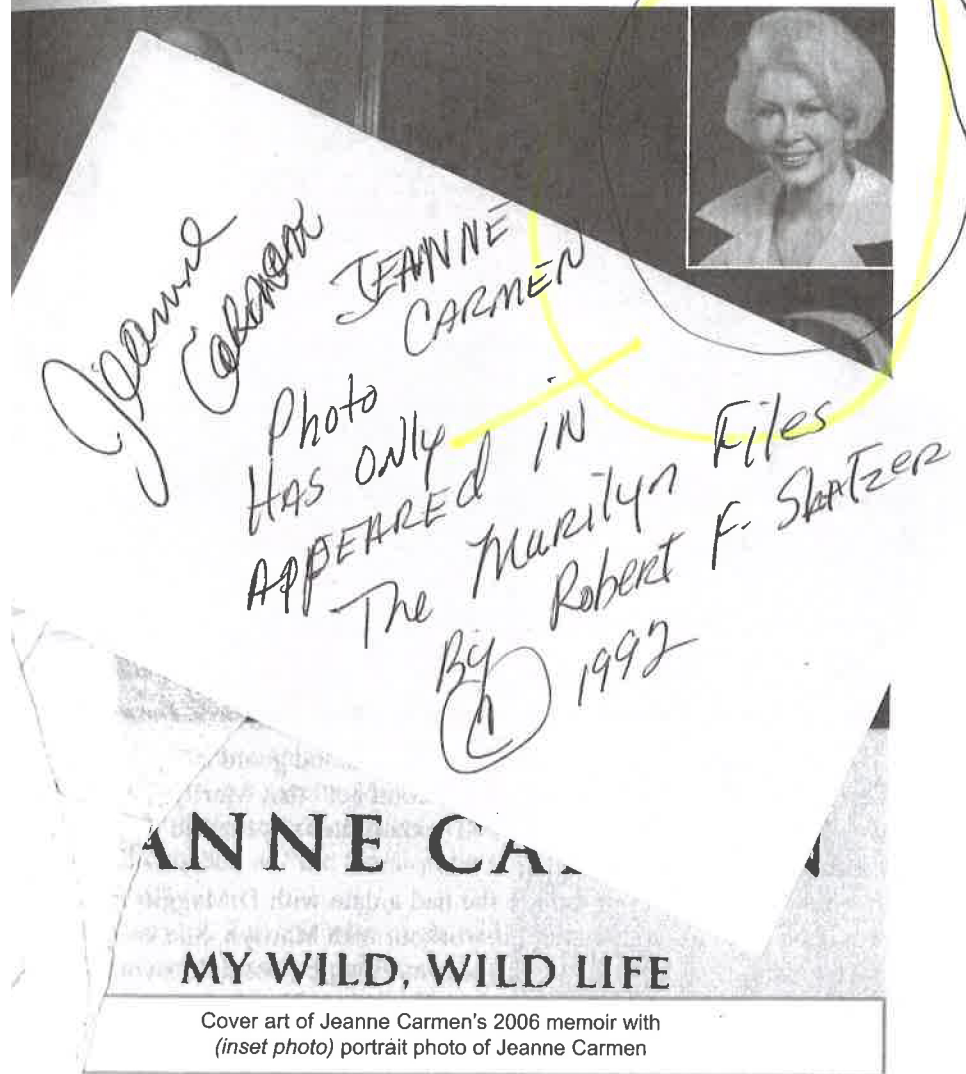 Jeanne
Carmen
JEANNE
CARMEN
Photo
HAS ONly
APPEARED IN
The Marilyn Files
By Robert F. Slatzer
© 1992
date with DiMaggio
with Marilyn
ANNE CA N
MY WILD, WILD LIFE
Cover art of Jeanne Carmen's 2006 memoir with
(inset photo) portrait photo of Jeanne Carmen